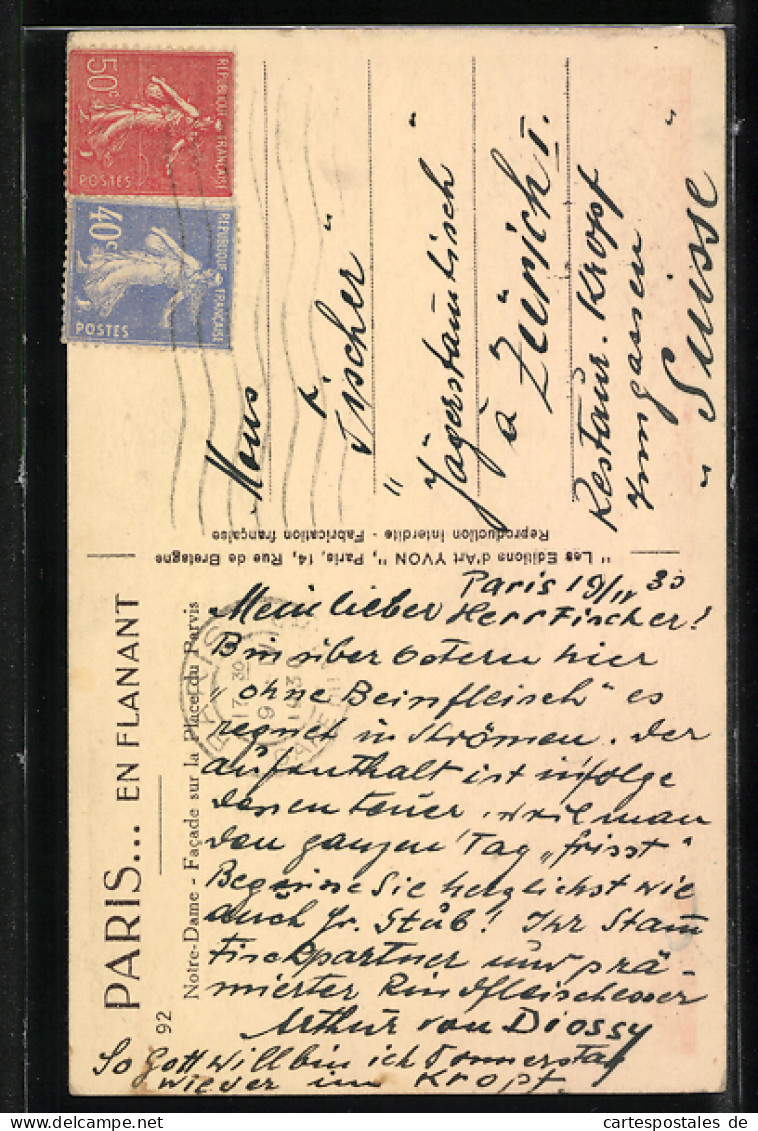 PARIS... EN FLANANT
92 Notre-Dame - Façade sur la Place du Parvis
" Les Editions d'Art YVON ", Paris, 14, Rue de Bretagne
Reproduction Interdite - Fabrication française
50c
RÉPUBLIQUE FRANÇAISE
POSTES
40c
RÉPUBLIQUE FRANÇAISE
POSTES
PARIS
17 30
Mons
Fischer "
" Jägerstamtisch "
à Zürich I.
Restaur. Kropf
Inngassen
" Suisse "
Paris 19/IV 30
Mein lieber Herr Fischer!
Bin über Ostern hier
"ohne Beinfleisch" es
regnet in Strömen. Der
aufenthalt ist infolge
dessen teuer, weil man
den ganzen Tag "frisst"
Begrüsse Sie herzlichst wie
auch Fr. Stüb! Ihr Stam
Tischpartner und prä-
mierter Rindfleischesser
Arthur von Diossy
So Gott will bin ich Donnerstag
wieder im Kropf.
cartespostales de